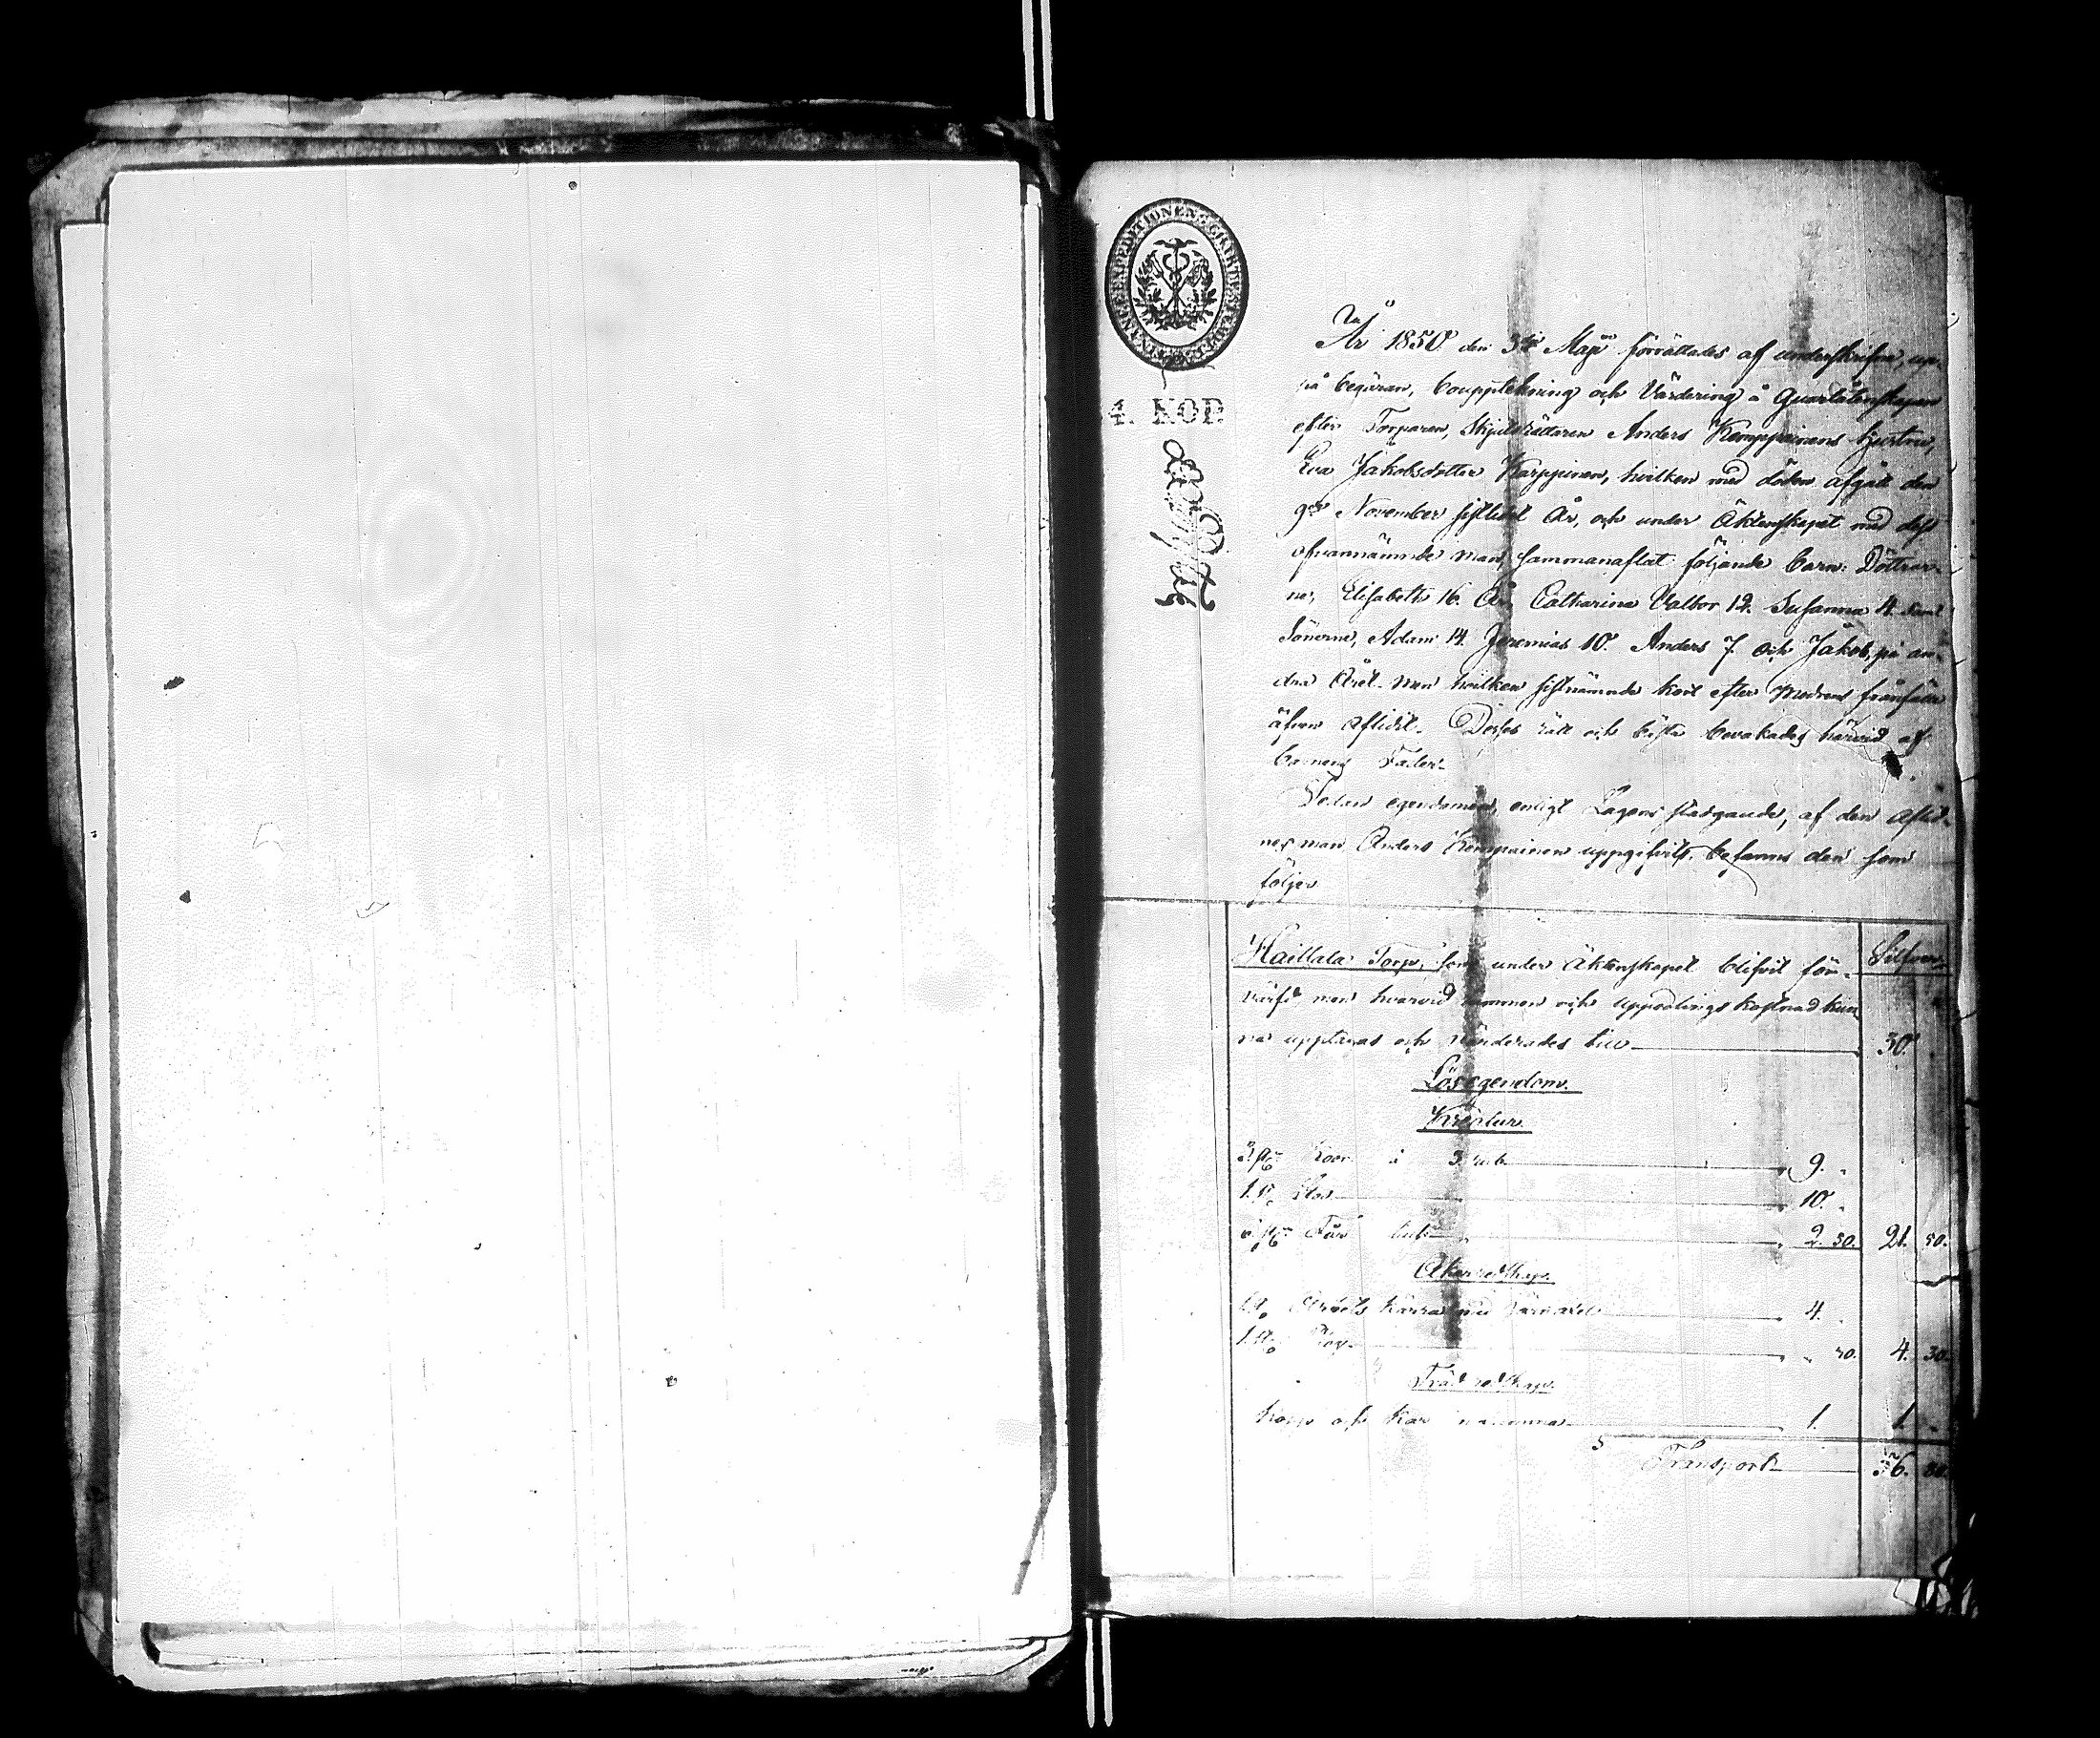 FINANCE EXPEDITIONENS CHARTÆ STEMPEL
4. KOP.
År 1850 den 3dje Maji förrättades af underskrifne, up-
på begäran, bouppteckning och Värdering å Qvarlåtenskapen
efter Torparen, Skjutsrättaren Anders Kemppainens hustru,
Eva Jakobsdotter Karppinen, hvilken med döden afgått den
9de November sistlidit År, och under Äktenskapet med dess
ofvannämnde man, sammanaflat följande barn: Döttrar-
na, Elisabeth 16. År, Catharina Valbor 12. Susanna 4. samt
Sönerne, Adam 14. Jeremias 10. Anders 7. och Jakob, på an-
dra Året. men hvilken sistnämnde kort efter Modrens frånfälle
äfven aflidit. Desses rätt och bästa bevakades härvid af
barnens Fader.
Sedan egendomen, enligt Lagens stadgande, af den aflid-
nes man Anders Kempainen uppgifvits, befanns den som
följer
Haillala Torp, som under Äktenskapet blifvit för-
Silfver
värfd men hvarvid och upodlings kostnad kun-
na upptagas och värderades till 30.
Lösegendom.
Kreatur.
3. st. Kor à 3 rub. 9.
1. st. 10.
st. Får 2. 50. 21. 50.
Åkerredskap.
1 st. Arbets kärra med 4.
1. st. 30. 4. 30.
Trädredskap.
och Kar 1. 1.
Transport 56. 80.